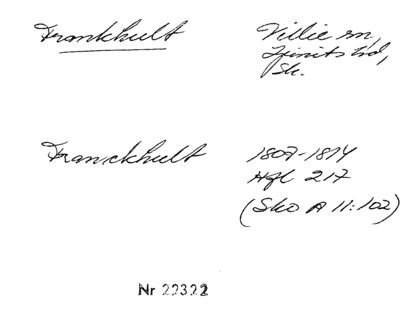 Frankhult Villie sn,
Ljunits hd,
Sk.
Franckhult 1807-1814
Hfl 217
(Sko A 11:102)
Nr 22322